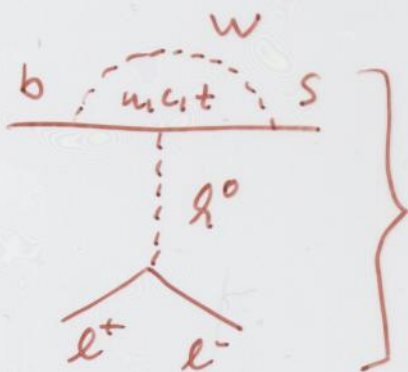 W
b u,c,t s
h⁰
l⁺ l⁻